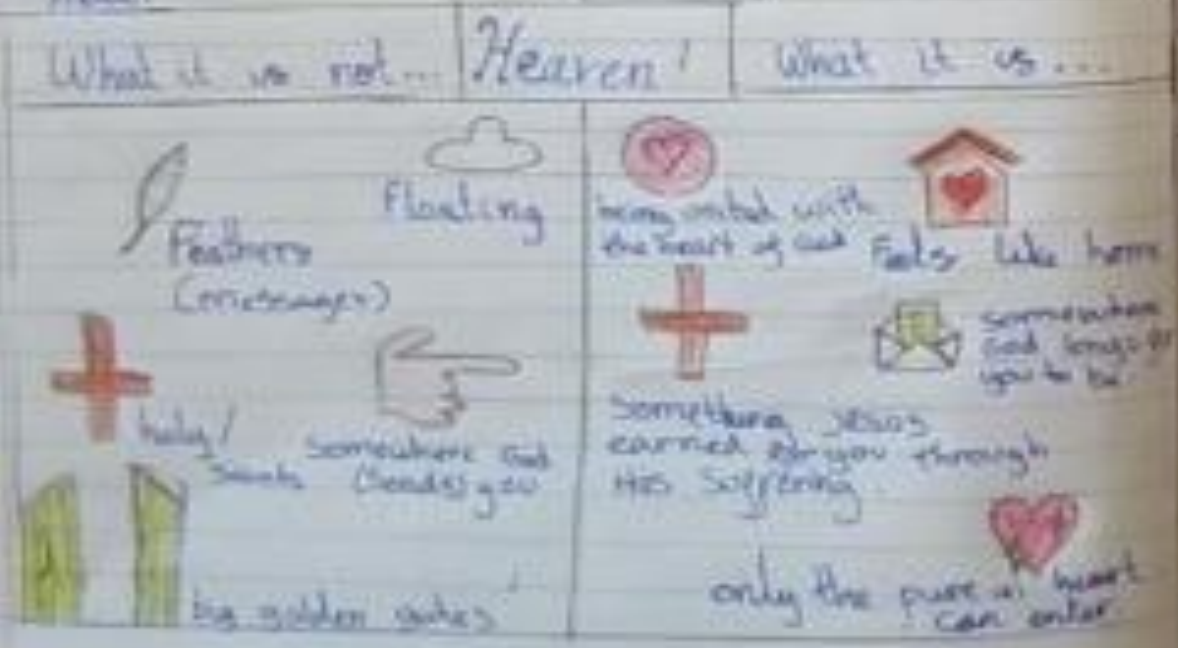 What it is not...
Heaven!
What it is...
Floating
Feathers
(messenger)
holy/
Saints
Somewhere God
(Sends) you
big golden gates
being united with
the heart of God
Feels like home
somewhere
God longs for
you to be
Something Jesus
earned for you through
His Suffering
only the pure in heart
can enter